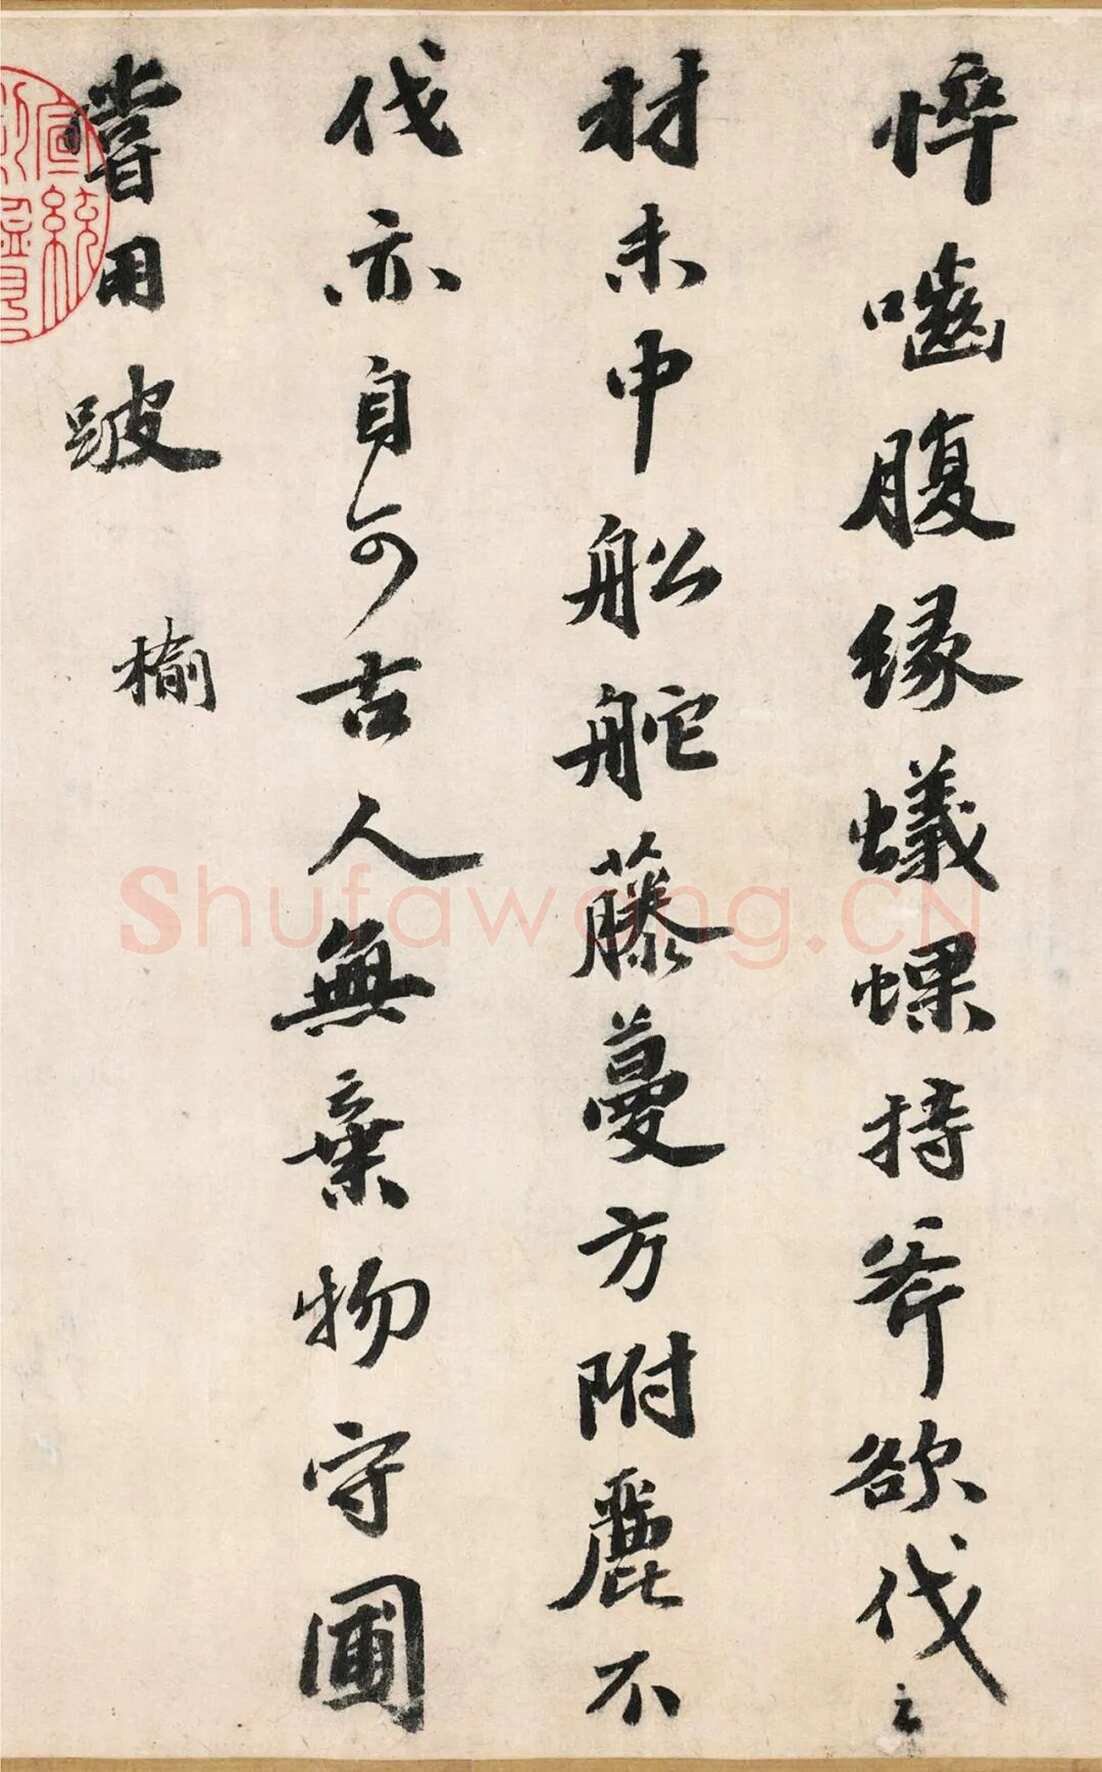 悴嚙腹緣蟻螺持斧欲伐之
材未中船舵藤蔓方附麗不
伐亦自可古人無棄物守圃
嘗用跛
榆
宣統
Shufawang.CN